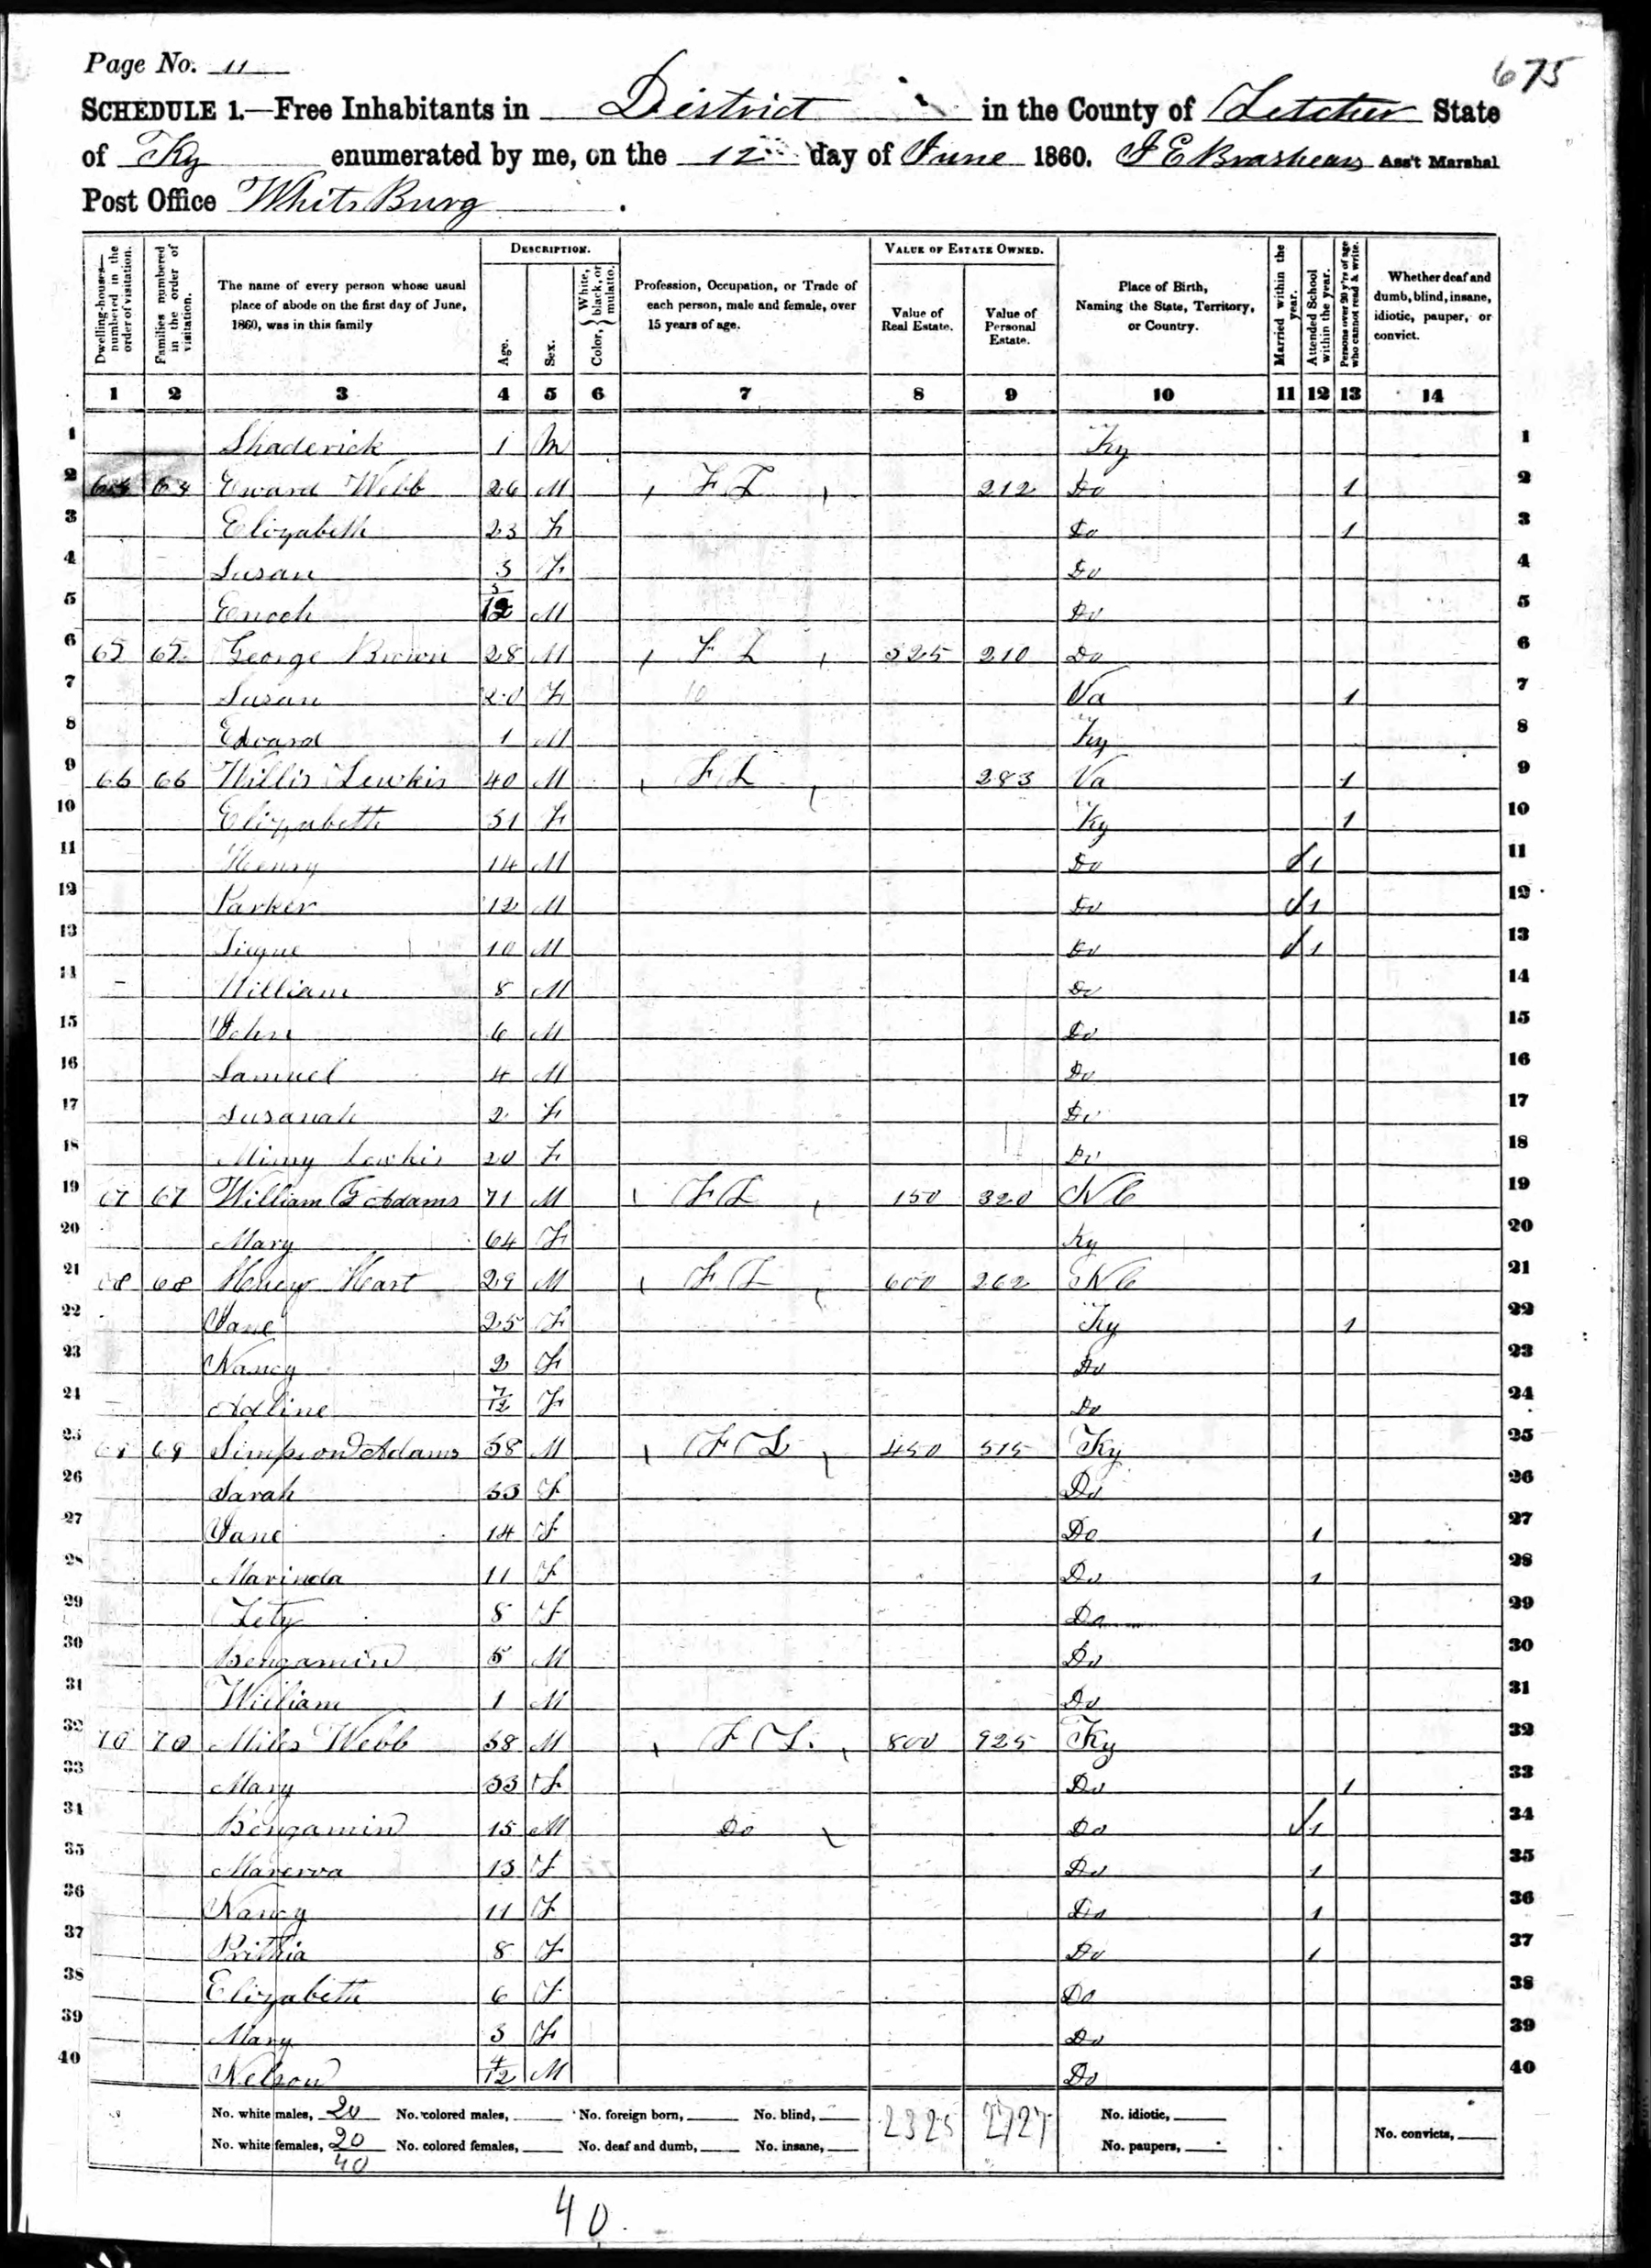 Page No. 11
675
SCHEDULE 1.—Free Inhabitants in District in the County of Letcher State
of Ky enumerated by me, on the 12 day of June 1860. J E Brashears Ass't Marshal
Post Office Whits Burg
Dwelling-houses—numbered in the order of visitation.
Families numbered in the order of visitation.
The name of every person whose usual place of abode on the first day of June, 1860, was in this family
DESCRIPTION.
Age.
Sex.
Color, { White, black, or mulatto.
Profession, Occupation, or Trade of each person, male and female, over 15 years of age.
VALUE OF ESTATE OWNED.
Value of Real Estate.
Value of Personal Estate.
Place of Birth, Naming the State, Territory, or Country.
Married within the year.
Attended School within the year.
Persons over 20 y'rs of age who cannot read & write.
Whether deaf and dumb, blind, insane, idiotic, pauper, or convict.
1 2 3 4 5 6 7 8 9 10 11 12 13 14
1 Shaderick 1 M Ky 1
2 64 64 Eward Webb 26 M F L 212 Do 1 2
3 Elizabeth 23 F Do 1 3
4 Susan 3 F Do 4
5 Enoch 3/12 M Do 5
6 65 65 George Brown 28 M F L 525 210 Do 6
7 Susan 20 F Va 1 7
8 Edward 1 M Ky 8
9 66 66 Willis Lewkis 40 M F L 283 Va 1 9
10 Elizabeth 31 F Ky 1 10
11 Henry 14 M Do 1 11
12 Parker 12 M Do 1 12
13 10 M Do 1 13
14 William 8 M Do 14
15 John 6 M Do 15
16 Samuel 4 M Do 16
17 Susanah 2 F Do 17
18 Mimy Lewkis 20 F Do 18
19 67 67 William G Adams 71 M F L 150 320 N C 19
20 Mary 64 F Ky 20
21 68 68 Henry Hart 29 M F L 600 262 N C 21
22 Jane 25 F Ky 1 22
23 Nancy 2 F Do 23
24 Adline 7/12 F Do 24
25 69 69 Simpson Adams 38 M F L 450 515 Ky 25
26 Sarah 33 F Do 26
27 Jane 14 F Do 1 27
28 Marinda 11 F Do 1 28
29 Lety 8 F Do 29
30 Bengamin 5 M Do 30
31 William 1 M Do 31
32 70 70 Miles Webb 38 M F L. 800 925 Ky 32
33 Mary 33 F Do 1 33
34 Bengamin 15 M Do Do 1 34
35 Manerva 13 F Do 1 35
36 Nancy 11 F Do 1 36
37 8 F Do 1 37
38 Elizabeth 6 F Do 38
39 Mary 3 F Do 39
40 Nelson 4/12 M Do 40
No. white males, 20 No. colored males, No. foreign born, No. blind, 2325 2727 No. idiotic,
No. white females, 20 No. colored females, No. deaf and dumb, No. insane, No. paupers, No. convicts,
40
40